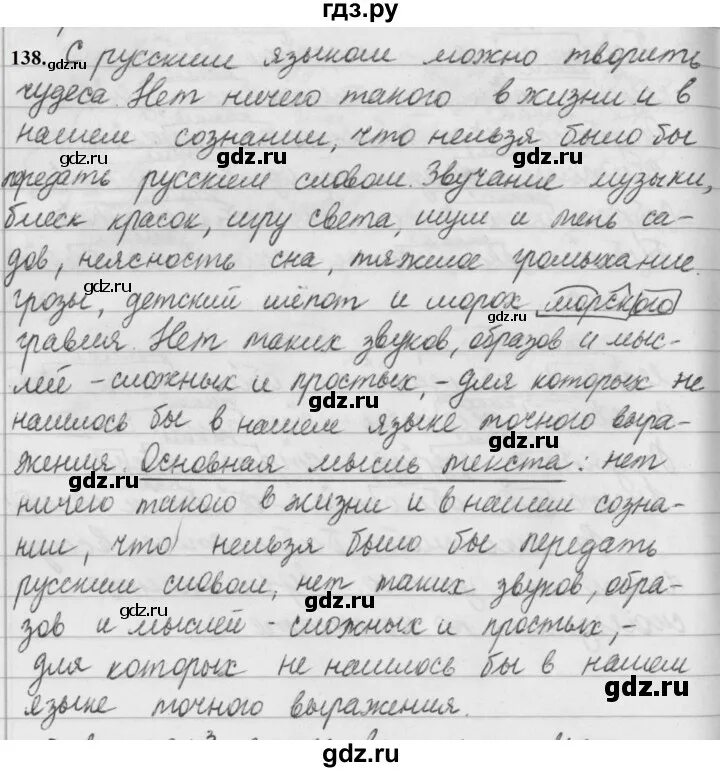 гдз.ру
138. С русским языком можно творить
gdz.ru gdz.ru
чудеса. Нет ничего такого в жизни и в
нашем сознании, что нельзя было бы
gdz.ru gdz.ru
передать русским словом. Звучание музыки,
блеск красок, игру света, шум и тень са-
gdz.ru
дов, неясность сна, тяжкое громыхание
грозы, детский шёпот и шорох морского
gdz.ru gdz.ru
гравия. Нет таких звуков, образов и мыс-
лей - сложных и простых, - для которых не
gdz.ru
нашлось бы в нашем языке точного выра-
жения. Основная мысль текста: нет
gdz.ru
ничего такого в жизни и в нашем созна-
нии, что нельзя было бы передать
gdz.ru
русским словом, нет таких звуков, обра-
gdz.ru
зов и мыслей - сложных и простых, -
для которых не нашлось бы в нашем
gdz.ru
языке точного выражения.
gdz.ru
gdz.ru